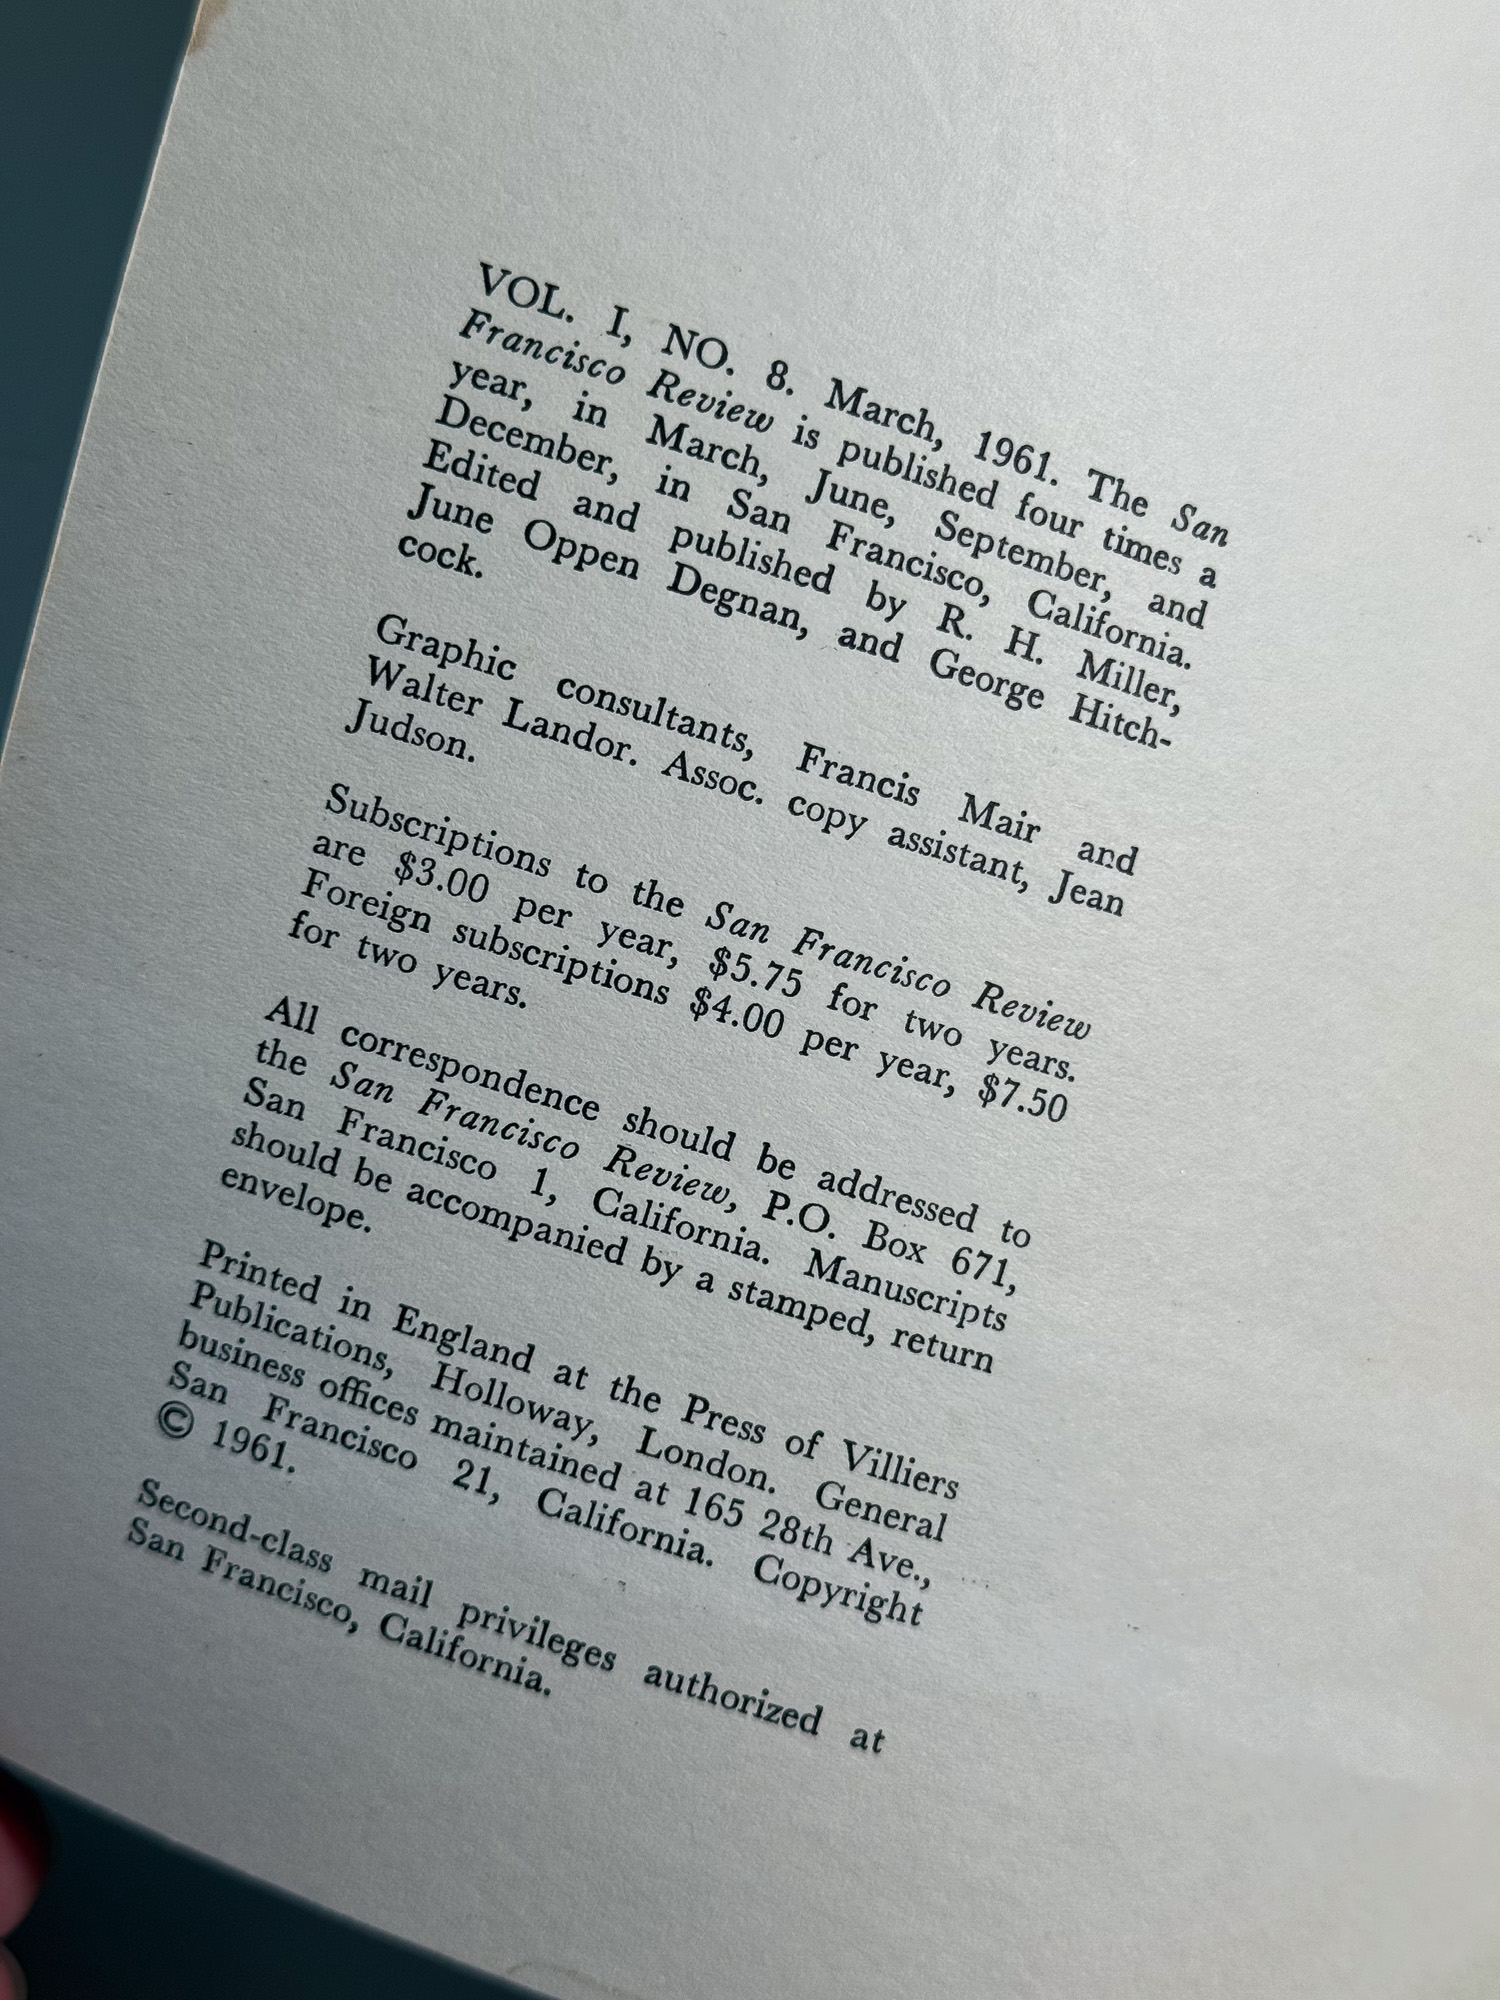 VOL. I, NO. 8. March, 1961. The San
Francisco Review is published four times a
year, in March, June, September, and
December, in San Francisco, California.
Edited and published by R. H. Miller,
June Oppen Degnan, and George Hitch-
cock.
Graphic consultants, Francis Mair and
Walter Landor. Assoc. copy assistant, Jean
Judson.
Subscriptions to the San Francisco Review
are $3.00 per year, $5.75 for two years.
Foreign subscriptions $4.00 per year, $7.50
for two years.
All correspondence should be addressed to
the San Francisco Review, P.O. Box 671,
San Francisco 1, California. Manuscripts
should be accompanied by a stamped, return
envelope.
Printed in England at the Press of Villiers
Publications, Holloway, London. General
business offices maintained at 165 28th Ave.,
San Francisco 21, California. Copyright
© 1961.
Second-class mail privileges authorized at
San Francisco, California.